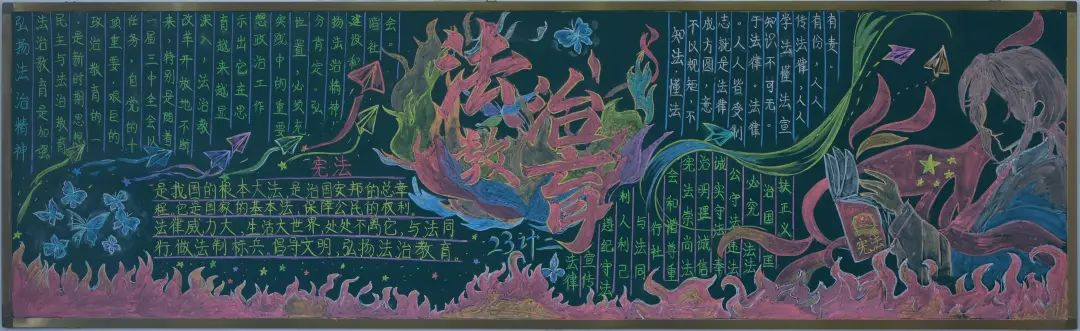 弘扬法治精神
法治教育是加强
民主与法治教育
是新时期思想
政治教育的
项重要艰巨的
任务,自党的十
一届三中全会以
来,特别是随着
改革开放地不断
深入,法治教
育越来越显
示出它在思
想政治工作
实践中的重要
位置,必须充
分肯定。弘
扬法治精神,
建设和
谐社
会
法治教育
宪法
是我国的根本大法,是治国安邦的总章
程,它是国家的基本法,保障公民的权利。
法律威力大,生活大世界,处处不离它,与法同
行做法制标兵,倡导文明,弘扬法治教育。
23计二
知法、懂法
不以规矩,不
成方圆,意
志就是法律
。人人皆受制
于法律。法律
知识不可无。
学法懂法宣
传法律,人人
有份,人人
有责。
法律
宣传
遵纪守法
利人利己
与法同
行社
会和谐尊重
宪法崇尚法
治明理诚信
诚实守法奉
公守法违法
必究 法
治国匡
扶正义
宪法